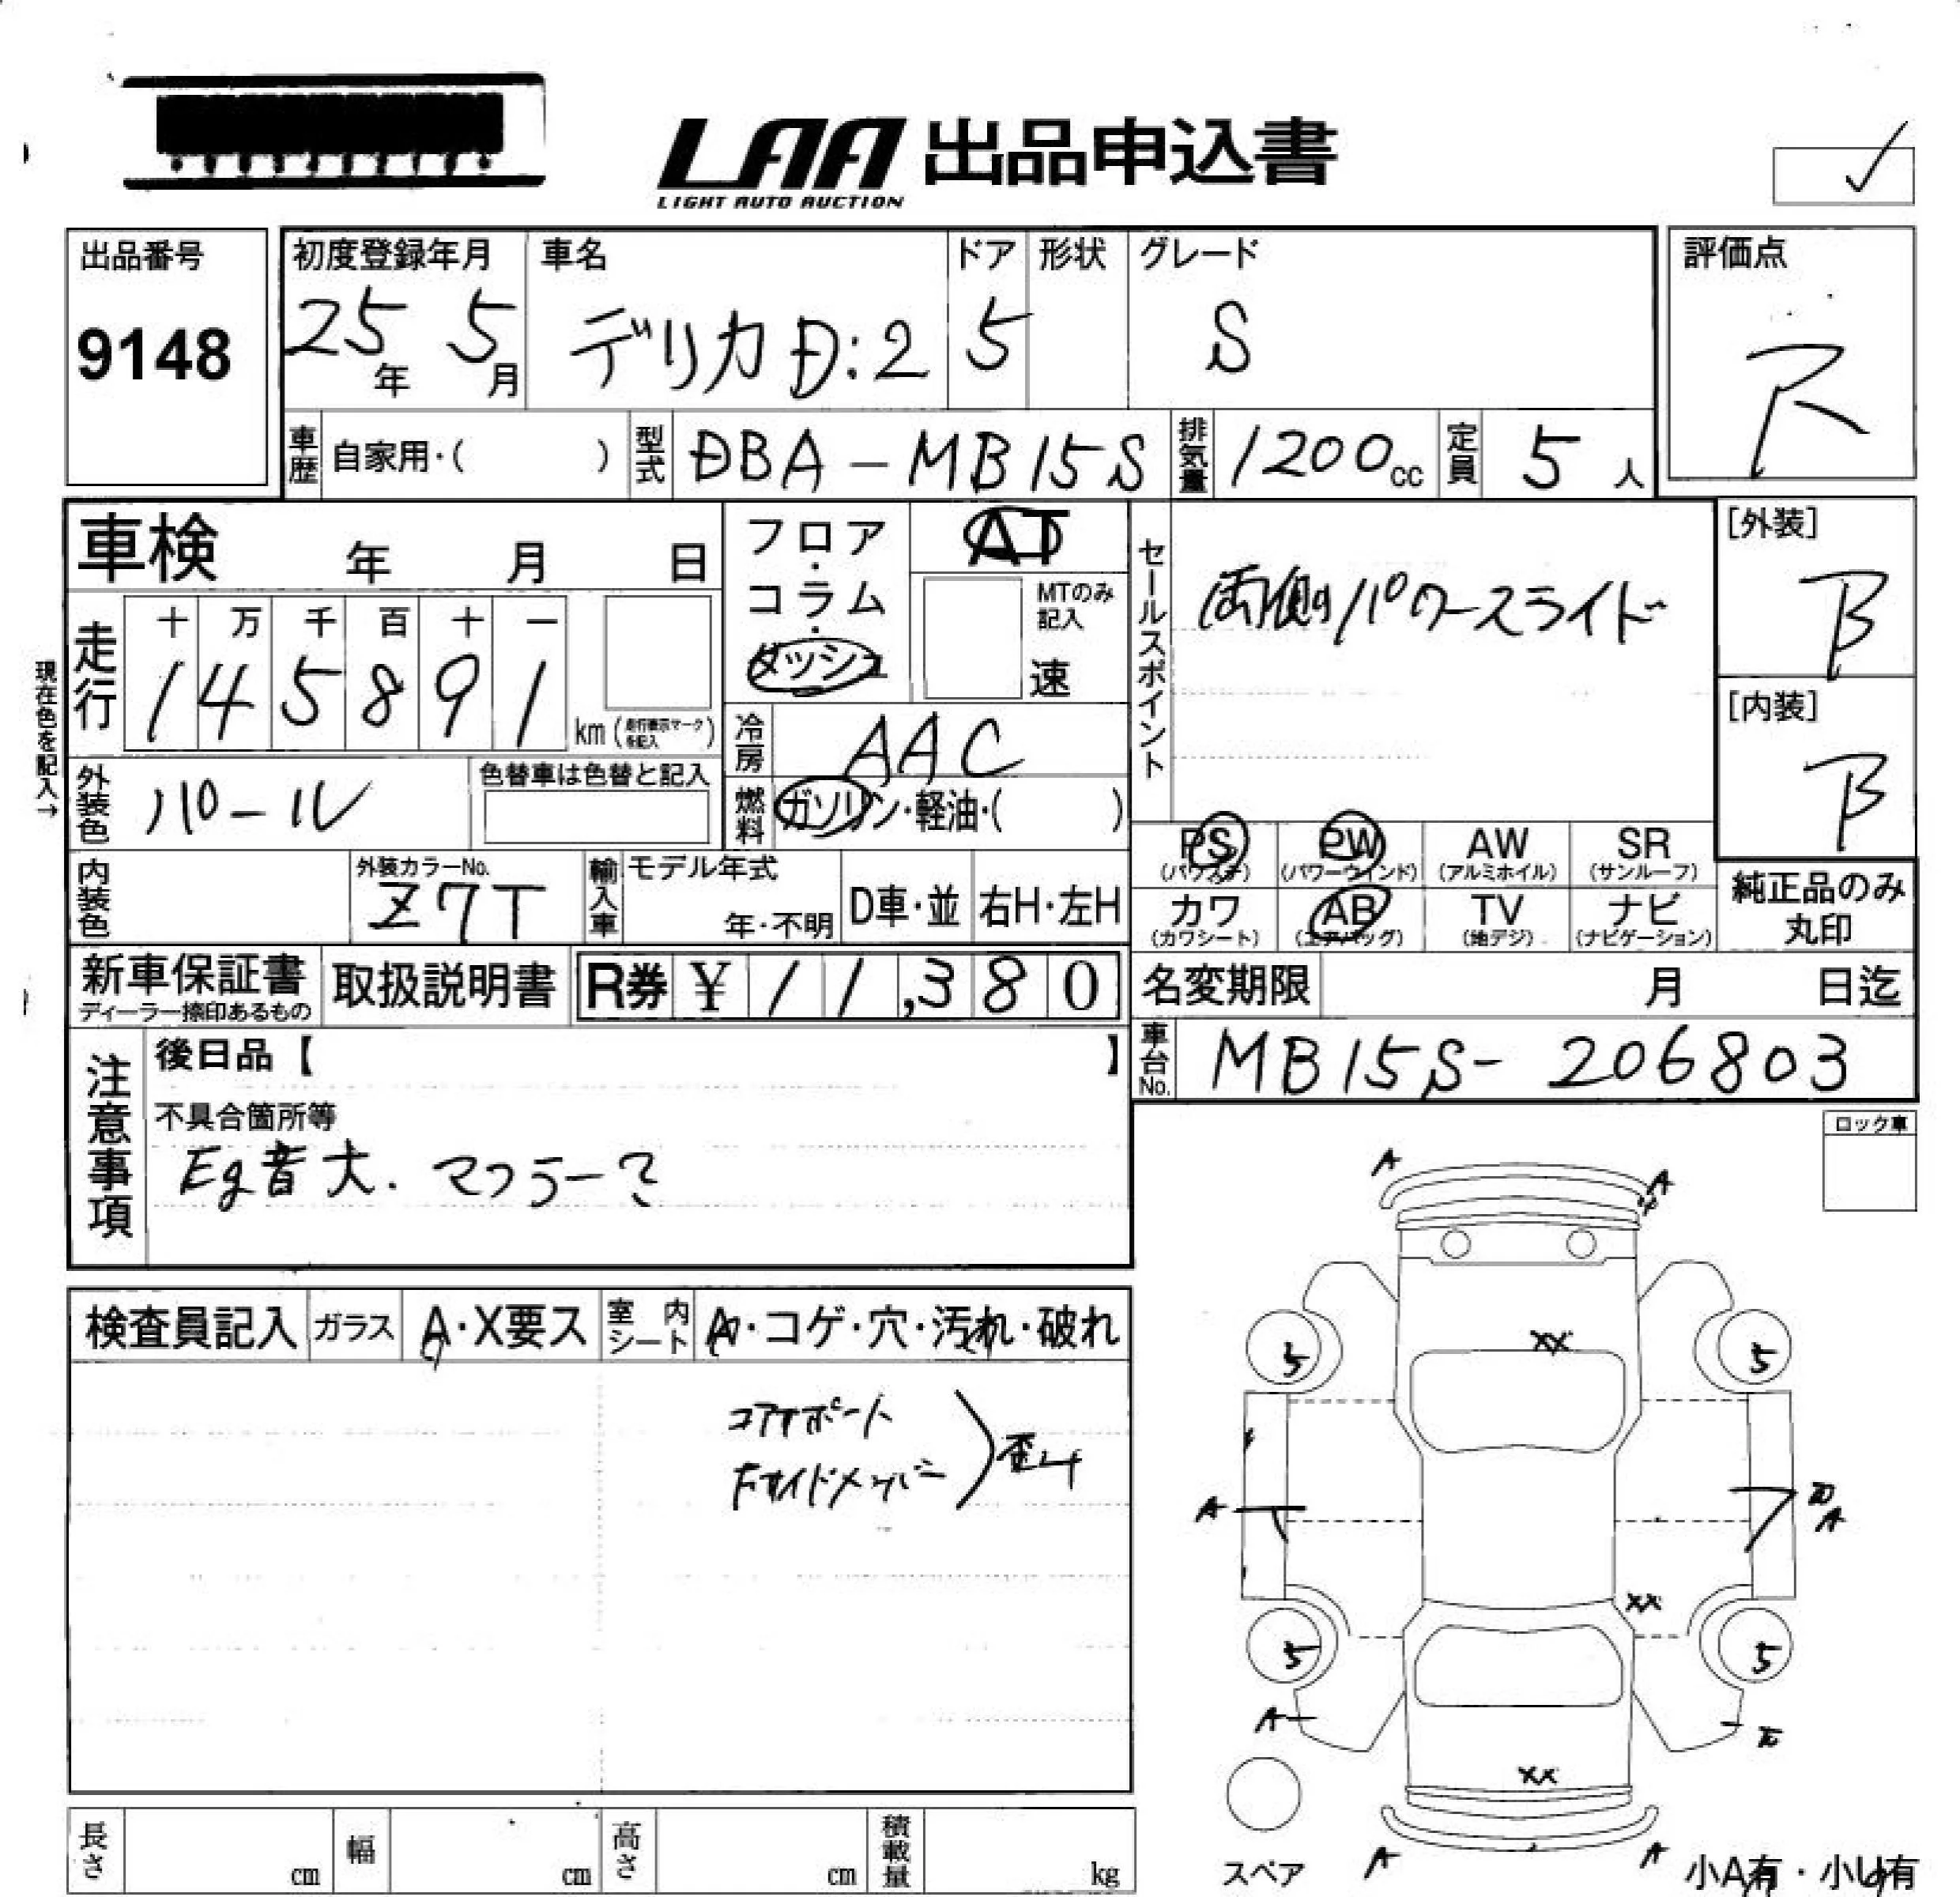 LAA 出品申込書
LIGHT AUTO AUCTION
出品番号
9148
初度登録年月
25年 5月
車名
デリカD:2
ドア
5
形状
グレード
S
評価点
R
車歴 自家用・( )
型式 DBA-MB15S
排気量 1200cc
定員 5人
車検 年 月 日
フロア・コラム・ダッシュ
AT
MTのみ記入
速
セールスポイント
両側パワースライド
[外装]
B
[内装]
B
現在色を記入→
走行
十 万 千 百 十 一
1 4 5 8 9 1
km (走行表示マークを記入)
冷房 AAC
外装色 パール
色替車は色替と記入
燃料 ガソリン・軽油・( )
PS (パワステ)
PW (パワーウィンド)
AW (アルミホイル)
SR (サンルーフ)
カワ (カワシート)
AB (エアバッグ)
TV (地デジ)
ナビ (ナビゲーション)
純正品のみ丸印
内装色
外装カラーNo.
Z7T
輸入車 モデル年式
年・不明
D車・並
右H・左H
新車保証書
ディーラー捺印あるもの
取扱説明書
R券 ¥ 11,380
名変期限 月 日迄
車台No. MB15S-206803
注意事項
後日品【 】
不具合箇所等
Eg音大. マフラー?
ロック車
検査員記入
ガラス A・X要ス
室内シート A・コゲ・穴・汚れ・破れ
コアサポート
右サイドメンバー
歪み
A A
XX
5 5
A A
XX
5 5
A
XX
A A
スペア
小A有・小U有
長さ cm
幅 cm
高さ cm
積載量 kg